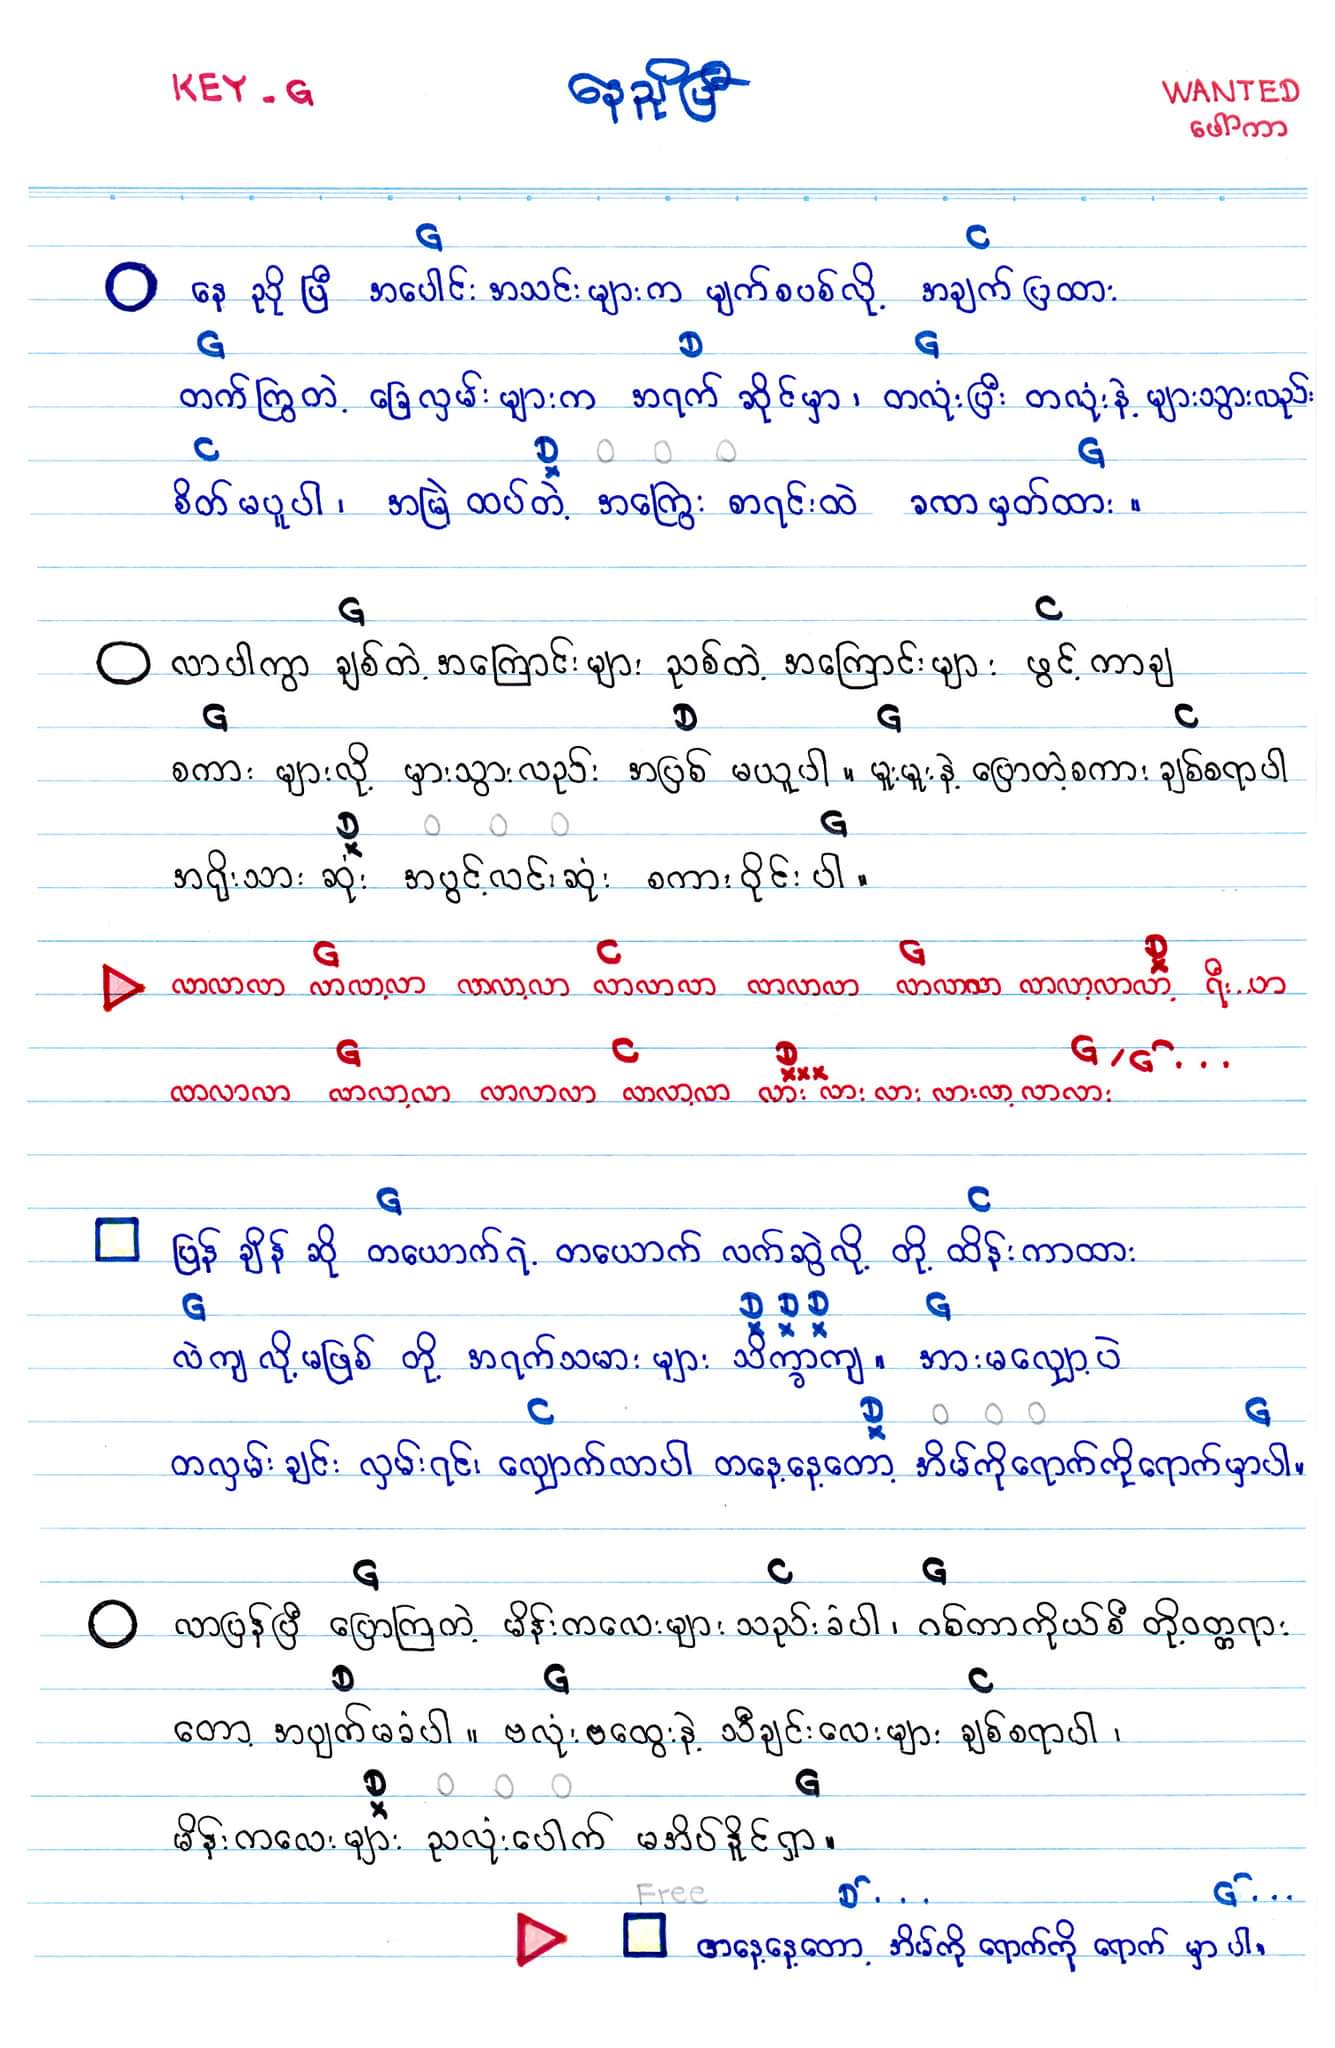 KEY - G နေညိုပြီ WANTED
ဖေါ်ကာ
G C
နေ ညို ပြီ အပေါင်း အသင်းများက မျက်စပစ်လို့ အချက်ပြထား
G D G
တက်ကြွတဲ့ ခြေလှမ်းများက အရက် ဆိုင်မှာ၊ တလုံးပြီး တလုံးနဲ့ များသွားလည်း
C D x O O O G
စိတ်မပူပါ၊ အမြဲထပ်တဲ့ အကြွေး စာရင်းထဲ ခဏမှတ်ထား။
G C
လာပါကွာ ချစ်တဲ့အကြောင်းများ ညစ်တဲ့ အကြောင်းများ ဖွင့်ကာချ
G D G C
စကား များလို့ မှားသွားလည်း အပြစ် မယူပါ။ မူးမူးနဲ့ ပြောတဲ့စကား ချစ်စရာပါ
D x O O O G
အရိုးသား ဆုံး အပွင့်လင်းဆုံး စကားဝိုင်းပါ။
G C G D x
လာလာလာ လာလာ့လာ လာလာ့လာ လာလာလာ လာလာလာ လာလာလာ လာလာ့လာလာ့ ရီး..ဟာ
G C D xxx G / G ...
လာလာလာ လာလာ့လာ လာလာလာ လာလာ့လာ လား လား လား လားလာ့လာလား
G C
ပြန် ချိန် ဆို တယောက်ရဲ့ တယောက် လက်ဆွဲလို့ တို့ ထိန်းကာထား
G D x D x D x G
လဲကျ လို့မဖြစ် တို့ အရက်သမား များ သိက္ခာကျ။ အားမလျှော့ပဲ
C D x O O O G
တလှမ်းချင်း လှမ်းရင်း လျှောက်လာပါ တနေ့နေ့တော့ အိမ်ကိုရောက်ကိုရောက်မှာပါ။
G C G
လာပြန်ပြီ ပြောကြတဲ့ မိန်းကလေးများ သည်းခံပါ၊ ဂစ်တာကိုယ်စီ တို့ဝတ္တရား
D G C
တော့ အပျက်မခံပါ။ ဗလုံးဗထွေးနဲ့ သီချင်းလေးများ ချစ်စရာပါ၊
D x O O O G
မိန်းကလေးများ ညလုံးပေါက် မအိပ်နိူင်ရှာ။
Free D ... G ...
တနေ့နေ့တော့ အိမ်ကို ရောက်ကို ရောက် မှာ ပါ။